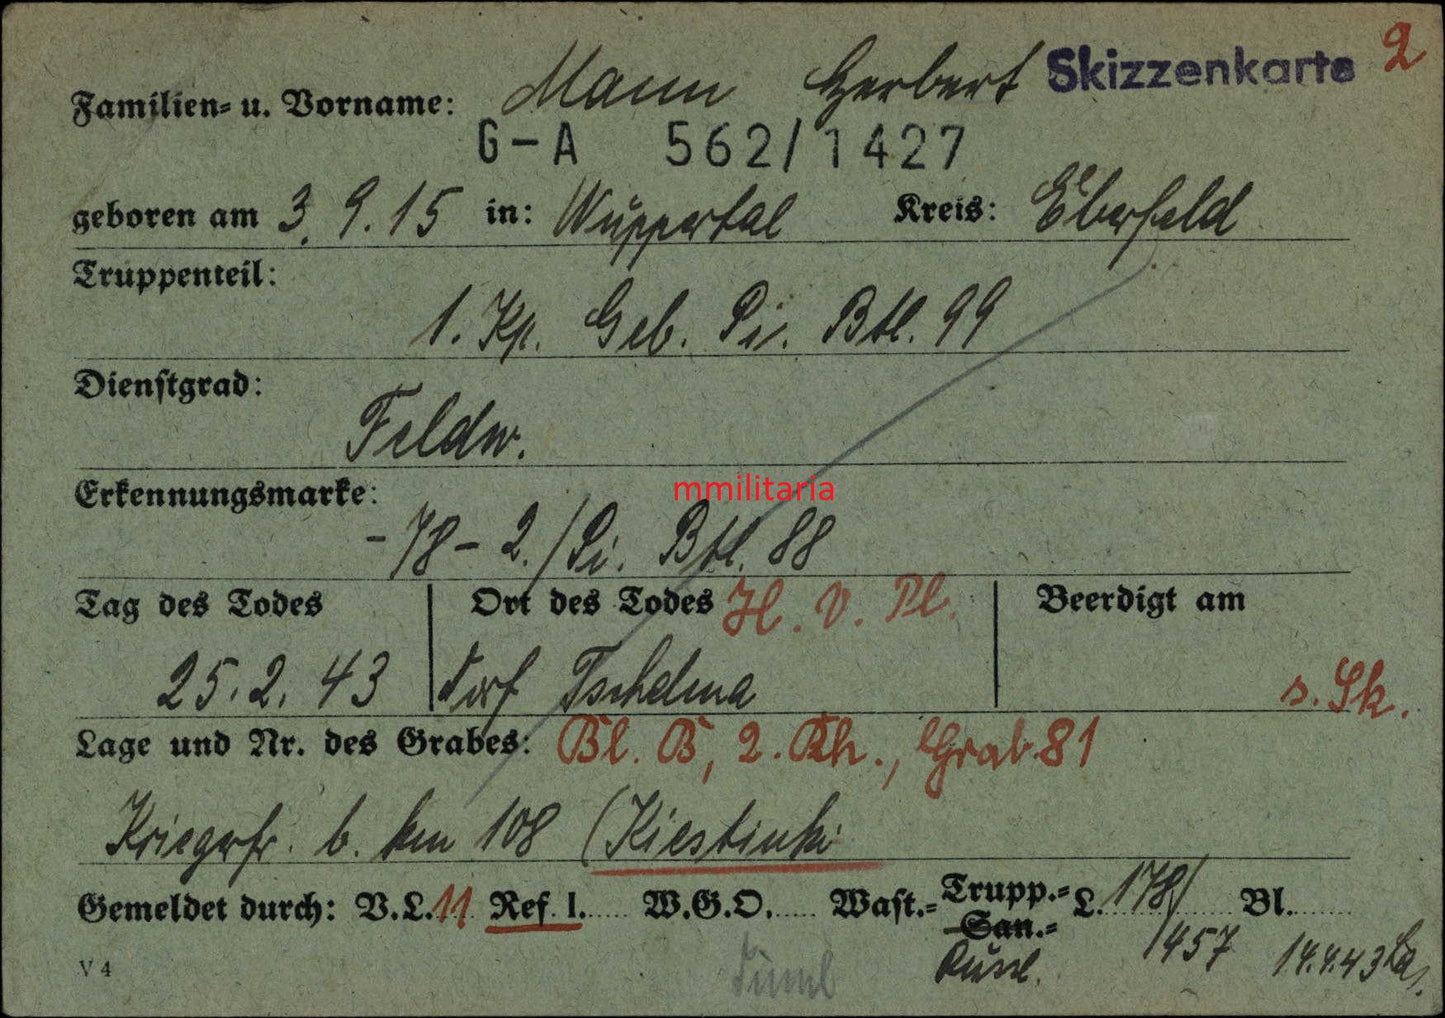 Familien= u. Vorname: Mann Herbert Skizzenkarte 2
G-A 562/1427
geboren am 3.9.15 in: Wuppertal Kreis: Elberfeld
Truppenteil:
1. Kp. Geb. Pi. Btl. 99
Dienstgrad:
Feldw.
Erkennungsmarke:
mmilitaria
-78- 2./Pi. Btl. 88
Tag des Todes Ort des Todes H.V.Pl. Beerdigt am
25.2.43 Dorf s. Sk.
Lage und Nr. des Grabes: Bl. B, 2. Rh., Grab 81
Kriegerfr. b. km 108 (Kiestinki
Gemeldet durch: V.L. 11 Ref. I. W.G.O. Wast.= Trupp.= San.= L. 178/ Bl.
V 4 1457 14.4.43